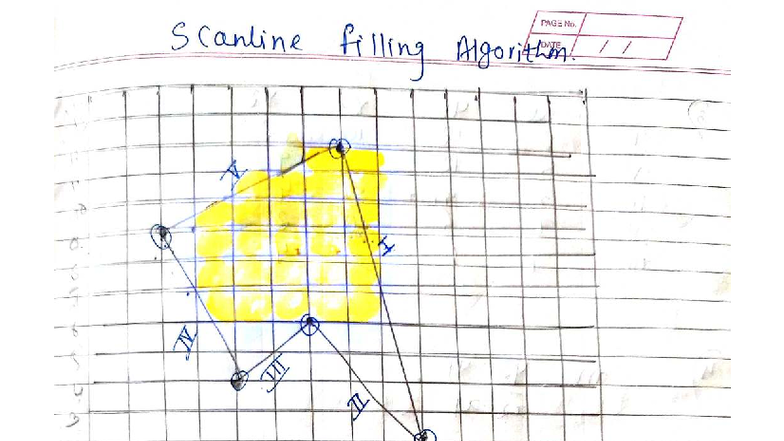 Scanline filling Algorithm.
PAGE No.
DATE / /
V
I
IV
III
II